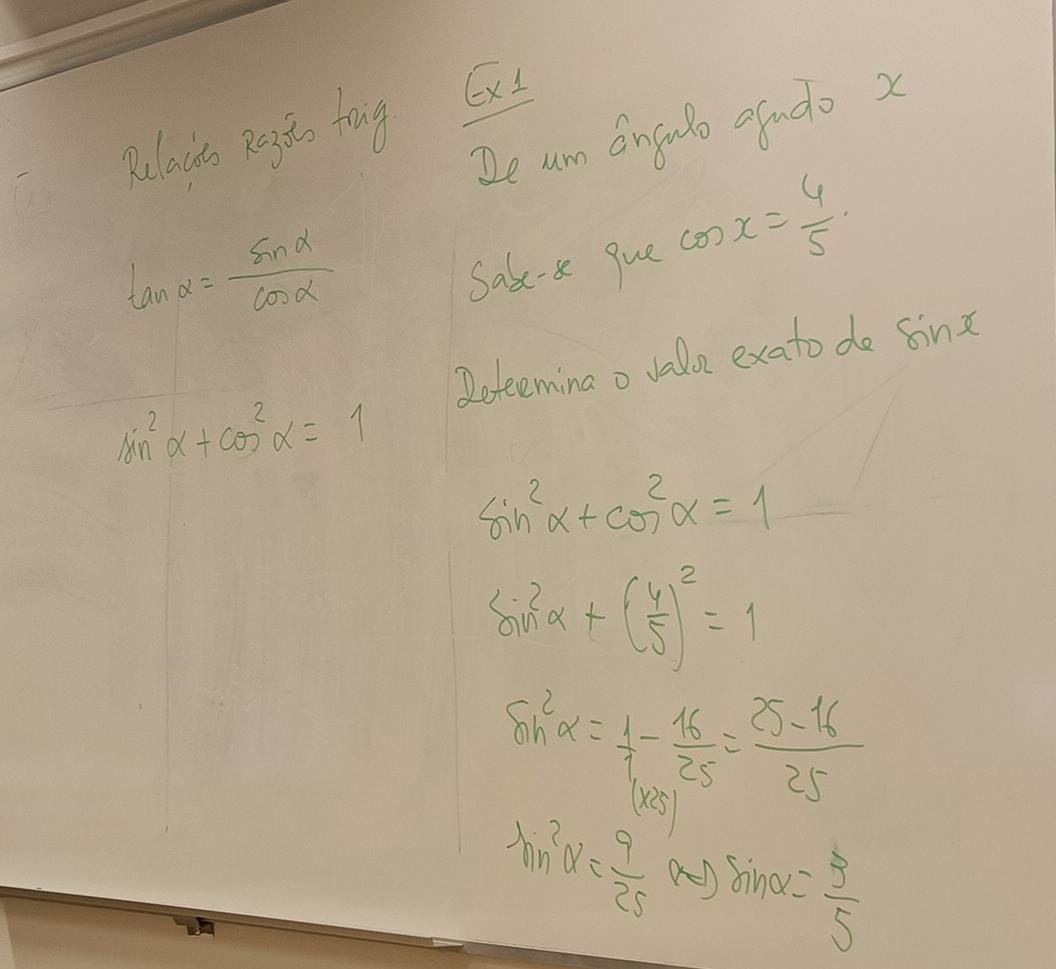 Relações Razões trig.
tan α = sin α / cos α
sin² α + cos² α = 1
Ex1
De um ângulo agudo x
Sabe-se que cos x = 4/5.
Determina o valor exato de sin x
sin² α + cos² α = 1
sin² α + (4/5)² = 1
sin² α = 1/1 - 16/25 = 25-16/25
(x25)
sin² α = 9/25 (=) sin α = 3/5